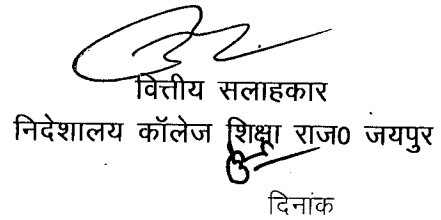 वित्तीय सलाहकार
निदेशालय कॉलेज शिक्षा राज0 जयपुर
दिनांक